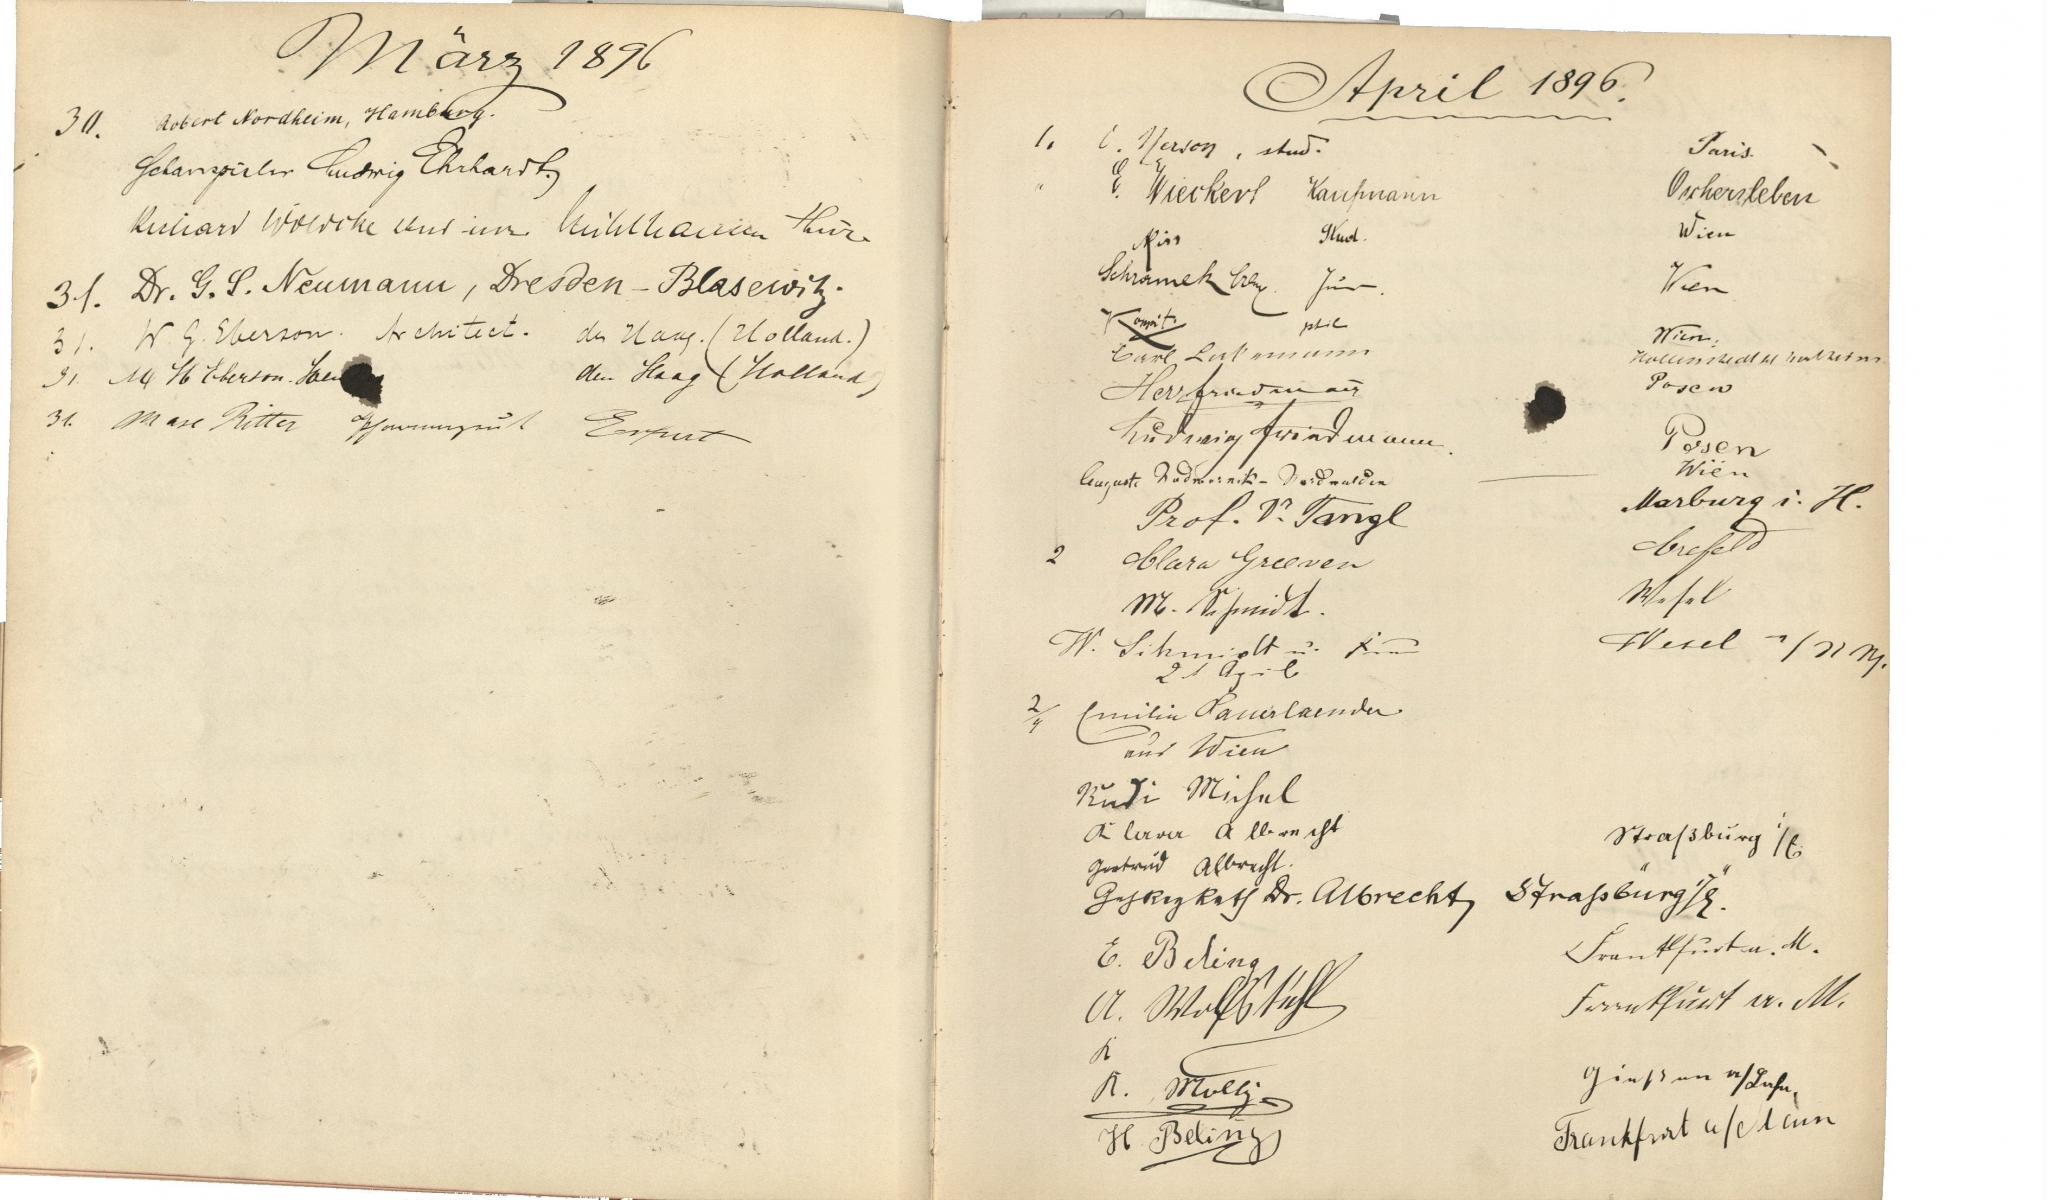 März 1896
30. Robert Nordheim, Hamburg.
Schauspieler Ludwig Ehrhardt
Richard und Mühlhausen Thür.
31. Dr. G. S. Neumann, Dresden-Blasewitz.
31. W. G. Eberson. Architect. den Haag. (Holland.)
31. Eberson. den Haag (Holland)
31. Max Ritter Erfurt
April 1896.
1. Nerson, stud. Paris.
" E. Wieckert Kaufmann Oschersleben
Stud. Wien
Schramek Jur. Wien
phil Wien.
Carl
Herr Friedmann Posen
Ludwig Friedmann. Posen
Auguste Wien
Prof. Dr. Tangl Marburg i. H.
2 Clara Greeven Crefeld
M. Schmidt. Wesel
W. Schmidt u. Frau Wesel
2. April
2/4 Emilie Sauerlaender
aus Wien
Rudi Michel
Klara Albrecht Straßburg i/E
Gertrud Albrecht. " "
Dr. Albrecht, Straßburg i/E.
E. Beling Frankfurt a. M.
A. Wolfstuhl Frankfurt a. M.
K
K. Moltz Gießen a/Lahn.
H. Beling Frankfurt a/Main